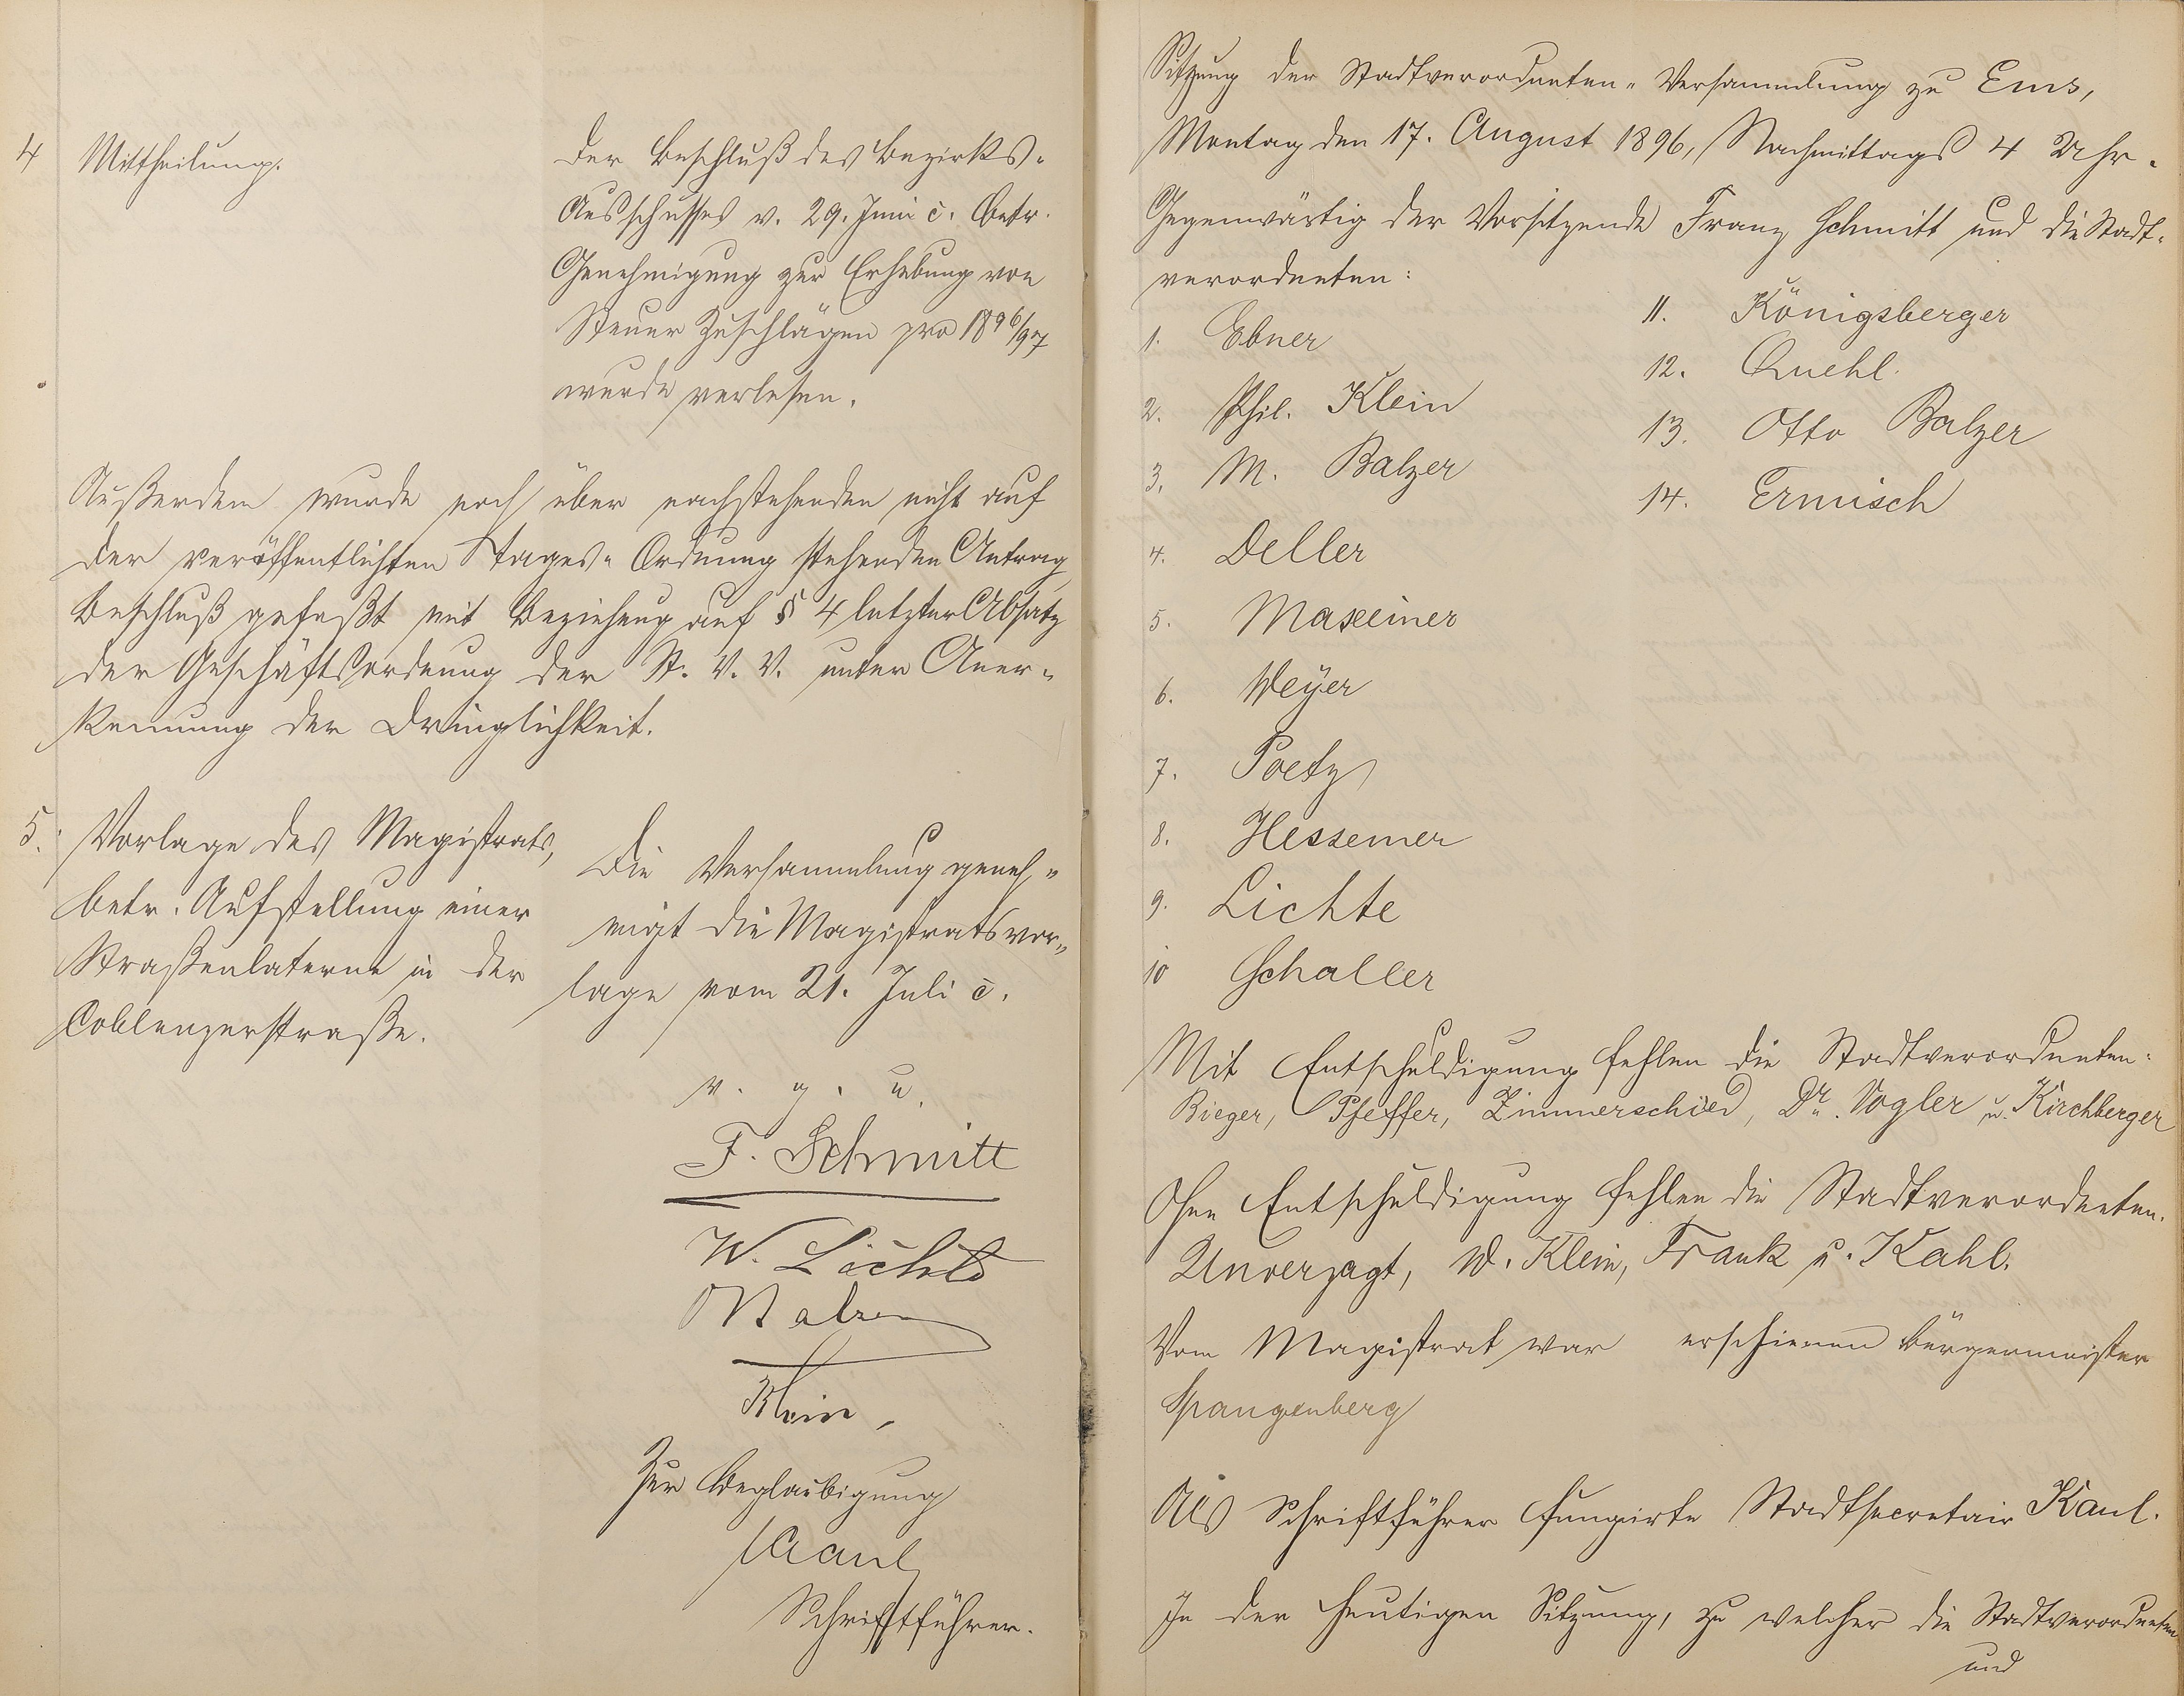 4 Mittheilung.
Der Beschluß des Bezirks-
Ausschusses v. 29. Juni c. betr.
Genehmigung zur Erhebung von
Steuer Zuschlägen pro 1896/97
wurde verlesen.
Außerdem wurde noch über nachstehenden nicht auf
der veröffentlichten Tages-Ordnung stehenden Antrag
Beschluß gefaßt mit Beziehung auf § 4 letzter Absatz
der Geschäftsordnung der St. V. V. unter Aner-
kennung der Dringlichkeit.
5. Vorlage des Magistrats,
betr. Aufstellung einer
Straßenlaterne in der
Coblenzerstraße.
Die Versammlung geneh-
migt die Magistratsvor-
lage vom 21. Juli c.
v. g. u.
F. Schmitt
W. Lichte
Klein,
Zur Beglaubigung
Kaul
Schriftführer.
Sitzung der Stadtverordneten-Versammlung zu Ems,
Montag den 17. August 1896, Nachmittags 4 Uhr.
Gegenwärtig der Vorsitzende Franz Schmitt und die Stadt-
verordneten:
1. Ebner
2. Phil. Klein
3. M. Balzer
4. Deller
5. Maxeiner
6. Weyer
7. Poetz
8. Hessemer
9. Lichte
10 Schaller
11. Königsberger
12. Quehl.
13. Otto Balzer
14. Ermisch
Mit Entschuldigung fehlen die Stadtverordneten:
Bieger, Pfeffer, Zimmerschied, Dr. Vogler u. Kirchberger
Ohne Entschuldigung fehlen die Stadtverordneten.
Unverzagt, W. Klein, Frank u. Kahl.
Vom Magistrat war erschienen Bürgermeister
Spangenberg
Als Schriftführer fungirte Stadtsecretair Kaul.
In der heutigen Sitzung, zu welcher die Stadtverordneten
und